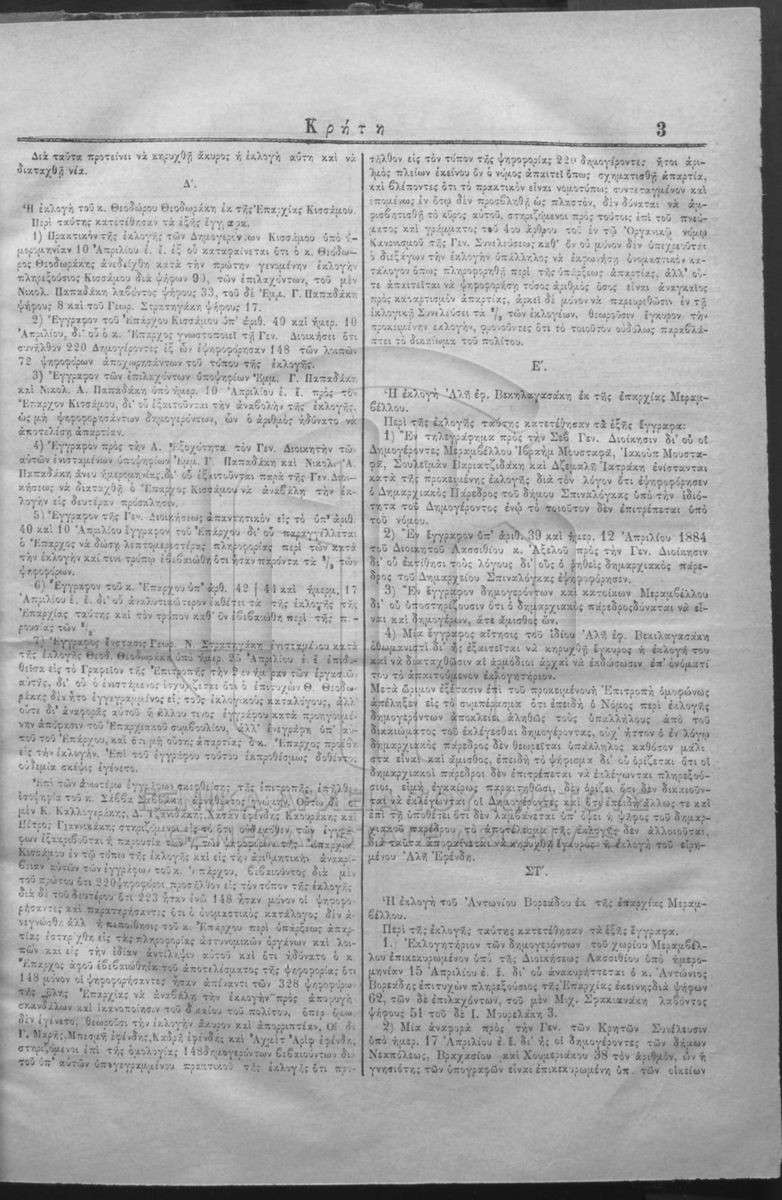 Κρήτη
3
Διὰ ταῦτα προτείνει νὰ κηρυχθῇ ἄκυρος ἡ ἐκλογὴ αὕτη καὶ νὰ
διαταχθῇ νέα.
Δ'.
Ἡ ἐκλογὴ τοῦ κ. Θεοδώρου Θεοδωράκη ἐκ τῆς Ἐπαρχίας Κισσάμου.
Περὶ ταύτης κατετέθησαν τὰ ἑξῆς ἔγγραφα.
1) Πρακτικὸν τῆς ἐκλογῆς τῶν Δημογερόντων Κισσάμου ὑπὸ ἡ-
μερομηνίαν 10 Ἀπριλίου ἐ. ἔ. ἐξ οὗ καταφαίνεται ὅτι ὁ κ. Θεόδω-
ρος Θεοδωράκης ἀνεδείχθη κατὰ τὴν πρώτην γενομένην ἐκλογὴν
πληρεξούσιος Κισσάμου διὰ ψήφων 90, τῶν ἐπιλαχόντων, τοῦ μὲν
Νικολ. Παπαδάκη λαβόντος ψήφους 33, τοῦ δὲ Ἐμμ. Γ. Παπαδάκη
ψήφους 8 καὶ τοῦ Γεωρ. Στρατηγάκη ψήφους 17.
2) Ἔγγραφον τοῦ Ἐπάρχου Κισσάμου ὑπ' ἀριθ. 40 καὶ ἡμερ. 10
Ἀπριλίου, δι' οὗ ὁ κ. Ἔπαρχος γνωστοποιεῖ τῇ Γεν. Διοικήσει ὅτι
συνῆλθον 220 Δημογέροντες ἐξ ὧν ἐψηφοφόρησαν 148 τῶν λοιπῶν
72 ψηφοφόρων ἀποχωρησάντων τοῦ τόπου τῆς ἐκλογῆς.
3) Ἔγγραφον τῶν ἐπιλαχόντων ὑποψηφίων Ἐμμ. Γ. Παπαδάκη
καὶ Νικολ. Α. Παπαδάκη ὑπὸ ἡμερ. 10 Ἀπριλίου ἐ. ἔ. πρὸς τὸν
Ἔπαρχον Κισσάμου, δι' οὗ ἐξαιτοῦνται τὴν ἀναβολὴν τῆς ἐκλογῆς,
ὡς μὴ ψηφοφορησάντων δημογερόντων, ὧν ὁ ἀριθμὸς ἠδύνατο νὰ
ἀποτελέσῃ ἀπαρτίαν.
4) Ἔγγραφον πρὸς τὴν Α. Ἐξοχότητα τὸν Γεν. Διοικητὴν τῶν
αὐτῶν ἐνισταμένων ὑποψηφίων Ἐμμ. Γ. Παπαδάκη καὶ Νικολ. Α.
Παπαδάκη ἄνευ ἡμερομηνίας, δι' οὗ ἐξαιτοῦνται παρὰ τῆς Γεν. Διοι-
κήσεως νὰ διαταχθῇ ὁ Ἔπαρχος Κισσάμου νὰ ἀναβάλῃ τὴν ἐκ-
λογὴν εἰς δευτέραν πρόσκλησιν.
5) Ἔγγραφον τῆς Γεν. Διοικήσεως ἀπαντητικὸν εἰς τὸ ὑπ' ἀριθ.
40 καὶ 10 Ἀπριλίου ἔγγραφον τοῦ Ἐπάρχου δι' οὗ παραγγέλλεται
ὁ Ἔπαρχος νὰ δώσῃ λεπτομερεστέρας πληροφορίας περὶ τῶν κατὰ
τὴν ἐκλογὴν καὶ τίνι τρόπῳ ἐβεβαιώθη ὅτι ἦσαν παρόντα τὰ ²/₃ τῶν
ψηφοφόρων.
6) Ἔγγραφον τοῦ κ. Ἐπάρχου ὑπ' ἀριθ. 42 / 44 καὶ ἡμερμ. 17
Ἀπριλίου ἐ. ἔ. δι' οὗ ἀναλυτικώτερον ἐκθέτει τὰ τῆς ἐκλογῆς τῆς
Ἐπαρχίας ταύτης καὶ τὸν τρόπον καθ' ὃν ἐβεβαιώθη περὶ τῆς πα-
ρουσίας τῶν ²/₃
7) Ἔγγραφος ἔνστασις Γεωρ. Ν. Στρατηγάκη ἐνισταμένου κατὰ
τῆς ἐκλογῆς Θεοδ. Θεοδωράκη ὑπὸ ἡμερ. 25 Ἀπριλίου ἐ. ἔ. ἐπιδο-
θεῖσα εἰς τὸ Γραφεῖον τῆς Ἐπιτροπῆς τὴν 2αν ἡμέραν τῶν ἐργασιῶν
αὐτῆς, δι' οὗ ὁ ἐνιστάμενος ἰσχυρίζεται ὅτι ὁ ἐπιτυχὼν Θ. Θεοδω-
ράκης δὲν ἦτο ἐγγεγραμμένος εἰς τοὺς ἐκλογικοὺς καταλόγους, ἀλλ'
οὔτε δι' ἀναφορᾶς αὐτοῦ ἢ ἄλλου τινος ἐνεγράφου κατὰ προηγουμέ-
νην ἀπόφασιν τοῦ Ἐπαρχιακοῦ συμβουλίου, ἀλλ' ἐνεγράφη ὑπ' αὐ-
τοῦ τοῦ Ἐπάρχου, καὶ ὅτι μὴ οὔσης ἀπαρτίας ὁ κ. Ἔπαρχος προέβη
εἰς τὴν ἐκλογήν. Ἐπὶ τοῦ ἐγγράφου τούτου ἐκπροθέσμως δοθέντος
οὐδεμία σκέψις ἐγένετο.
Ἐπὶ τῶν ἀνωτέρω ἐγγράφων σκεφθείσης τῆς ἐπιτροπῆς, ἐπῆλθεν
ἰσοψηφία τοῦ κ. Σάββα Σαββάκη ἀρνηθέντος γνώμην. Οὕτω δὲ οἱ
μὲν Κ. Καλλογεράκης, Δ. Τζανιδάκης, Χασὰν ἐφένδης Καουράκης καὶ
Πέτρος Γιαννικάκης στηριζόμενοι εἰς τὸ ὅτι οὐδαμόθεν τῶν ἐγγρά-
φων ἐξακριβοῦται ἡ παρουσία τῶν ²/₃ τῶν ψηφοφόρων τῆς Ἐπαρχίας
Κισσάμου ἐν τῷ τόπῳ τῆς ἐκλογῆς καὶ εἰς τὴν ἀριθμητικὴν ἀνακρί-
βειαν αὐτῶν τῶν ἐγγράφων τοῦ κ. Ἐπάρχου, βεβαιοῦντος διὰ μὲν
τοῦ πρώτου ὅτι 220 ψηφοφόροι προσῆλθον εἰς τὸν τόπον τῆς ἐκλογῆς
διὰ δὲ τοῦ δευτέρου ὅτι 223 ἦσαν ἐνῷ 148 ἦσαν μόνον οἱ ψηφοφο-
ρήσαντες καὶ παρατηρήσαντες ὅτι ὁ ὀνομαστικὸς κατάλογος δὲν ἀ-
νεγνώσθη ἀλλ' ἡ πεποίθησις τοῦ κ. Ἐπάρχου περὶ ὑπάρξεως ἀπαρ-
τίας ἐστηρίχθη εἰς τὰς πληροφορίας ἀστυνομικῶν ὀργάνων καὶ λοι-
πῶν καὶ εἰς τὴν ἰδίαν ἀντίληψιν αὐτοῦ καὶ ὅτι ἠδύνατο ὁ κ.
Ἔπαρχος ἀφοῦ ἐβεβαιώθη ἐκ τοῦ ἀποτελέσματος τῆς ψηφοφορίας ὅτι
148 μόνον οἱ ψηφοφορήσαντες ἦσαν ἀπέναντι τῶν 328 ψηφοφόρων
τῆς ὅλης Ἐπαρχίας νὰ ἀναβάλῃ τὴν ἐκλογὴν πρὸς ἀποφυγὴν
σκανδάλων καὶ ἱκανοποίησιν τοῦ δικαίου τοῦ πολίτου, ὅπερ ὅμως
δὲν ἐγένετο, θεωροῦσι τὴν ἐκλογὴν ἄκυρον καὶ ἀπορριπτέαν. Οἱ δὲ
Γ. Μαρῆς, Μπεσμῆ ἐφένδης, Καδρῆ ἐφένδης καὶ Ἀχμὲτ Ἀρὶφ ἐφένδη,
στηριζόμενοι ἐπὶ τῆς ὁμολογίας 148 δημογερόντων βεβαιούντων διὰ
τοῦ ὑπ' αὐτῶν ὑπογεγραμμένου πρακτικοῦ τῆς ἐκλογῆς ὅτι προ-
σῆλθον εἰς τὸν τόπον τῆς ψηφοφορίας 220 δημογέροντες ἤτοι ἀρι-
θμὸς πλείων ἐκείνου ὃν ὁ νόμος ἀπαιτεῖ ὅπως σχηματισθῇ ἀπαρτία,
καὶ βλέποντες ὅτι τὸ πρακτικὸν εἶναι νομοτύπως συντεταγμένον καὶ
ἑπομένως ἐν ὅσῳ δὲν προσβληθῇ ὡς πλαστόν, δὲν δύναται νὰ ἀμ-
φισβητηθῇ τὸ κῦρος αὐτοῦ, στηριζόμενοι πρὸς τούτοις ἐπὶ τοῦ πνεύ-
ματος καὶ γράμματος τοῦ 4ου ἄρθρου τοῦ ἐν τῷ Ὀργανικῷ νόμῳ
Κανονισμοῦ τῆς Γεν. Συνελεύσεως καθ' ὃν οὐ μόνον δὲν ὑποχρεοῦται
ὁ διεξάγων τὴν ἐκλογὴν ὑπάλληλος νὰ ἐκφωνήσῃ ὀνομαστικὸν κα-
τάλογον ὅπως πληροφορηθῇ περὶ τῆς ὑπάρξεως ἀπαρτίας, ἀλλ' οὔ-
τε ἀπαιτεῖται νὰ ψηφοφορήσῃ τόσος ἀριθμὸς ὅσος εἶναι ἀναγκαῖος
πρὸς καταρτισμὸν ἀπαρτίας, ἀρκεῖ δὲ μόνον νὰ παρευρεθῶσιν ἐν τῇ
ἐκλογικῇ Συνελεύσει τὰ ²/₃ τῶν ἐκλογέων, θεωροῦσιν ἔγκυρον τὴν
προκειμένην ἐκλογήν, φρονοῦντες ὅτι τὸ τοιοῦτον οὐδόλως παραβλά-
πτει τὸ δικαίωμα τοῦ πολίτου.
Ε'.
Ἡ ἐκλογὴ Ἀλῆ ἐφ. Βεκηλαγασάκη ἐκ τῆς ἐπαρχίας Μεραμ-
βέλλου.
Περὶ τῆς ἐκλογῆς ταύτης κατετέθησαν τὰ ἑξῆς ἔγγραφα:
1) Ἓν τηλεγράφημα πρὸς τὴν Σεβ. Γεν. Διοίκησιν δι' οὗ οἱ
Δημογέροντες Μεραμβέλλου Ἰβραὴμ Μουσταφᾶ, Ἰακοὺπ Μουστα-
φᾶ, Σουλεϊμὰν Βαριατζιδάκη καὶ Δζεμαλῆ Ἰατράκη ἐνίστανται
κατὰ τῆς προκειμένης ἐκλογῆς διὰ τὸν λόγον ὅτι ἐψηφοφόρησεν
ὁ Δημαρχιακὸς Πάρεδρος τοῦ δήμου Σπιναλόγκας ὑπὸ τὴν ἰδιό-
τητα τοῦ Δημογέροντος ἐνῷ τὸ τοιοῦτον δὲν ἐπιτρέπεται ὑπὸ
τοῦ νόμου.
2) Ἓν ἔγγραφον ὑπ' ἀριθ. 39 καὶ ἡμερ. 12 Ἀπριλίου 1884
τοῦ Διοικητοῦ Λασσιθίου κ. Ἀξελοῦ πρὸς τὴν Γεν. Διοίκησιν
δι' οὗ ἐκτίθησι τοὺς λόγους δι' οὓς ὁ ῥηθεὶς δημαρχιακὸς πάρε-
δρος τοῦ Δημαρχείου Σπιναλόγκας ἐψηφοφόρησεν.
3) Ἓν ἔγγραφον δημογερόντων καὶ κατοίκων Μεραμβέλλου
δι' οὗ ὑποστηρίζουσιν ὅτι ὁ δημαρχιακὸς πάρεδρος δύναται νὰ εἶ-
ναι καὶ δημογέρων, ἅτε ἄμισθος ὤν.
4) Μία ἔγγραφος αἴτησις τοῦ ἰδίου Ἀλῆ ἐφ. Βεκιλαγασάκη
ὀθωμανιστὶ δι' ἧς ἐξαιτεῖται νὰ κηρυχθῇ ἔγκυρος ἡ ἐκλογή του
καὶ νὰ διαταχθῶσιν αἱ ἁρμόδιοι ἀρχαὶ νὰ ἐκδώσωσιν ἐπ' ὀνόματί
του τὸ ἀπαιτούμενον ἐκλογητήριον.
Μετὰ ὥριμον ἐξέτασιν ἐπὶ τοῦ προκειμένου ἡ Ἐπιτροπὴ ὁμοφώνως
ἀπέληξεν εἰς τὸ συμπέρασμα ὅτι ἐπειδὴ ὁ Νόμος περὶ ἐκλογῆς
δημογερόντων ἀποκλείει ἀληθῶς τοὺς ὑπαλλήλους ἀπὸ τοῦ
δικαιώματος τοῦ ἐκλέγεσθαι δημογέροντας, οὐχ' ἧττον ὁ ἐν λόγῳ
δημαρχιακὸς πάρεδρος δὲν θεωρεῖται ὑπάλληλος καθόσον μάλι-
στα εἶναι καὶ ἄμισθος, ἐπειδὴ τὸ ψήφισμα δι' οὗ ὁρίζεται ὅτι οἱ
δημαρχιακοὶ πάρεδροι δὲν ἐπιτρέπεται νὰ ἐκλέγωνται πληρεξού-
σιοι, εἰμὴ ἐγκαίρως παραιτηθῶσι, δὲν ὁρίζει ὅτι δὲν δικαιοῦν-
ται νὰ ἐκλέγωνται οἱ Δημογέροντες καὶ ὅτι ἐπειδὴ ἄλλως τε καὶ
ἐπὶ τῇ ὑποθέσει ὅτι δὲν λαμβάνεται ὑπ' ὄψει ἡ ψῆφος τοῦ δημαρ-
χιακοῦ παρέδρου, τὸ ἀποτέλεσμα τῆς ἐκλογῆς δὲν ἀλλοιοῦται,
διὰ ταῦτα ἀποφαίνεται νὰ κηρυχθῇ ἔγκυρος ἡ ἐκλογὴ τοῦ εἰρη-
μένου Ἀλῆ Ἐφένδη.
ΣΤ'.
Ἡ ἐκλογὴ τοῦ Ἀντωνίου Βορεάδου ἐκ τῆς ἐπαρχίας Μεραμ-
βέλλου.
Περὶ τῆς ἐκλογῆς ταύτης κατετέθησαν τὰ ἑξῆς ἔγγραφα.
1.) Ἐκλογητήριον τῶν δημογερόντων τοῦ χωρίου Μεραμβέλ-
λου ἐπικεκυρωμένον ὑπὸ τῆς Διοικήσεως Λασσιθίου ὑπὸ ἡμερο-
μηνίαν 15 Ἀπριλίου ἐ. ἔ. δι' οὗ ἀνακηρύττεται ὁ κ. Ἀντώνιος
Βορεάδης ἐπιτυχὼν πληρεξούσιος τῆς Ἐπαρχίας ἐκείνης διὰ ψήφων
62, τῶν δὲ ἐπιλαχόντων, τοῦ μὲν Μιχ. Σφακιανάκη λαβόντος
ψήφους 51 τοῦ δὲ Ι. Μουρελάκη 3.
2) Μία ἀναφορὰ πρὸς τὴν Γεν. τῶν Κρητῶν Συνέλευσιν
ὑπὸ ἡμερ. 17 Ἀπριλίου ἐ. ἔ. δι' ἧς οἱ δημογέροντες τῶν δήμων
Νεαπόλεως, Βραχασίου καὶ Χουμεριάκου 38 τὸν ἀριθμόν, ὧν ἡ
γνησιότης τῶν ὑπογραφῶν εἶναι ἐπικεκυρωμένη ὑπὸ τῶν οἰκείων